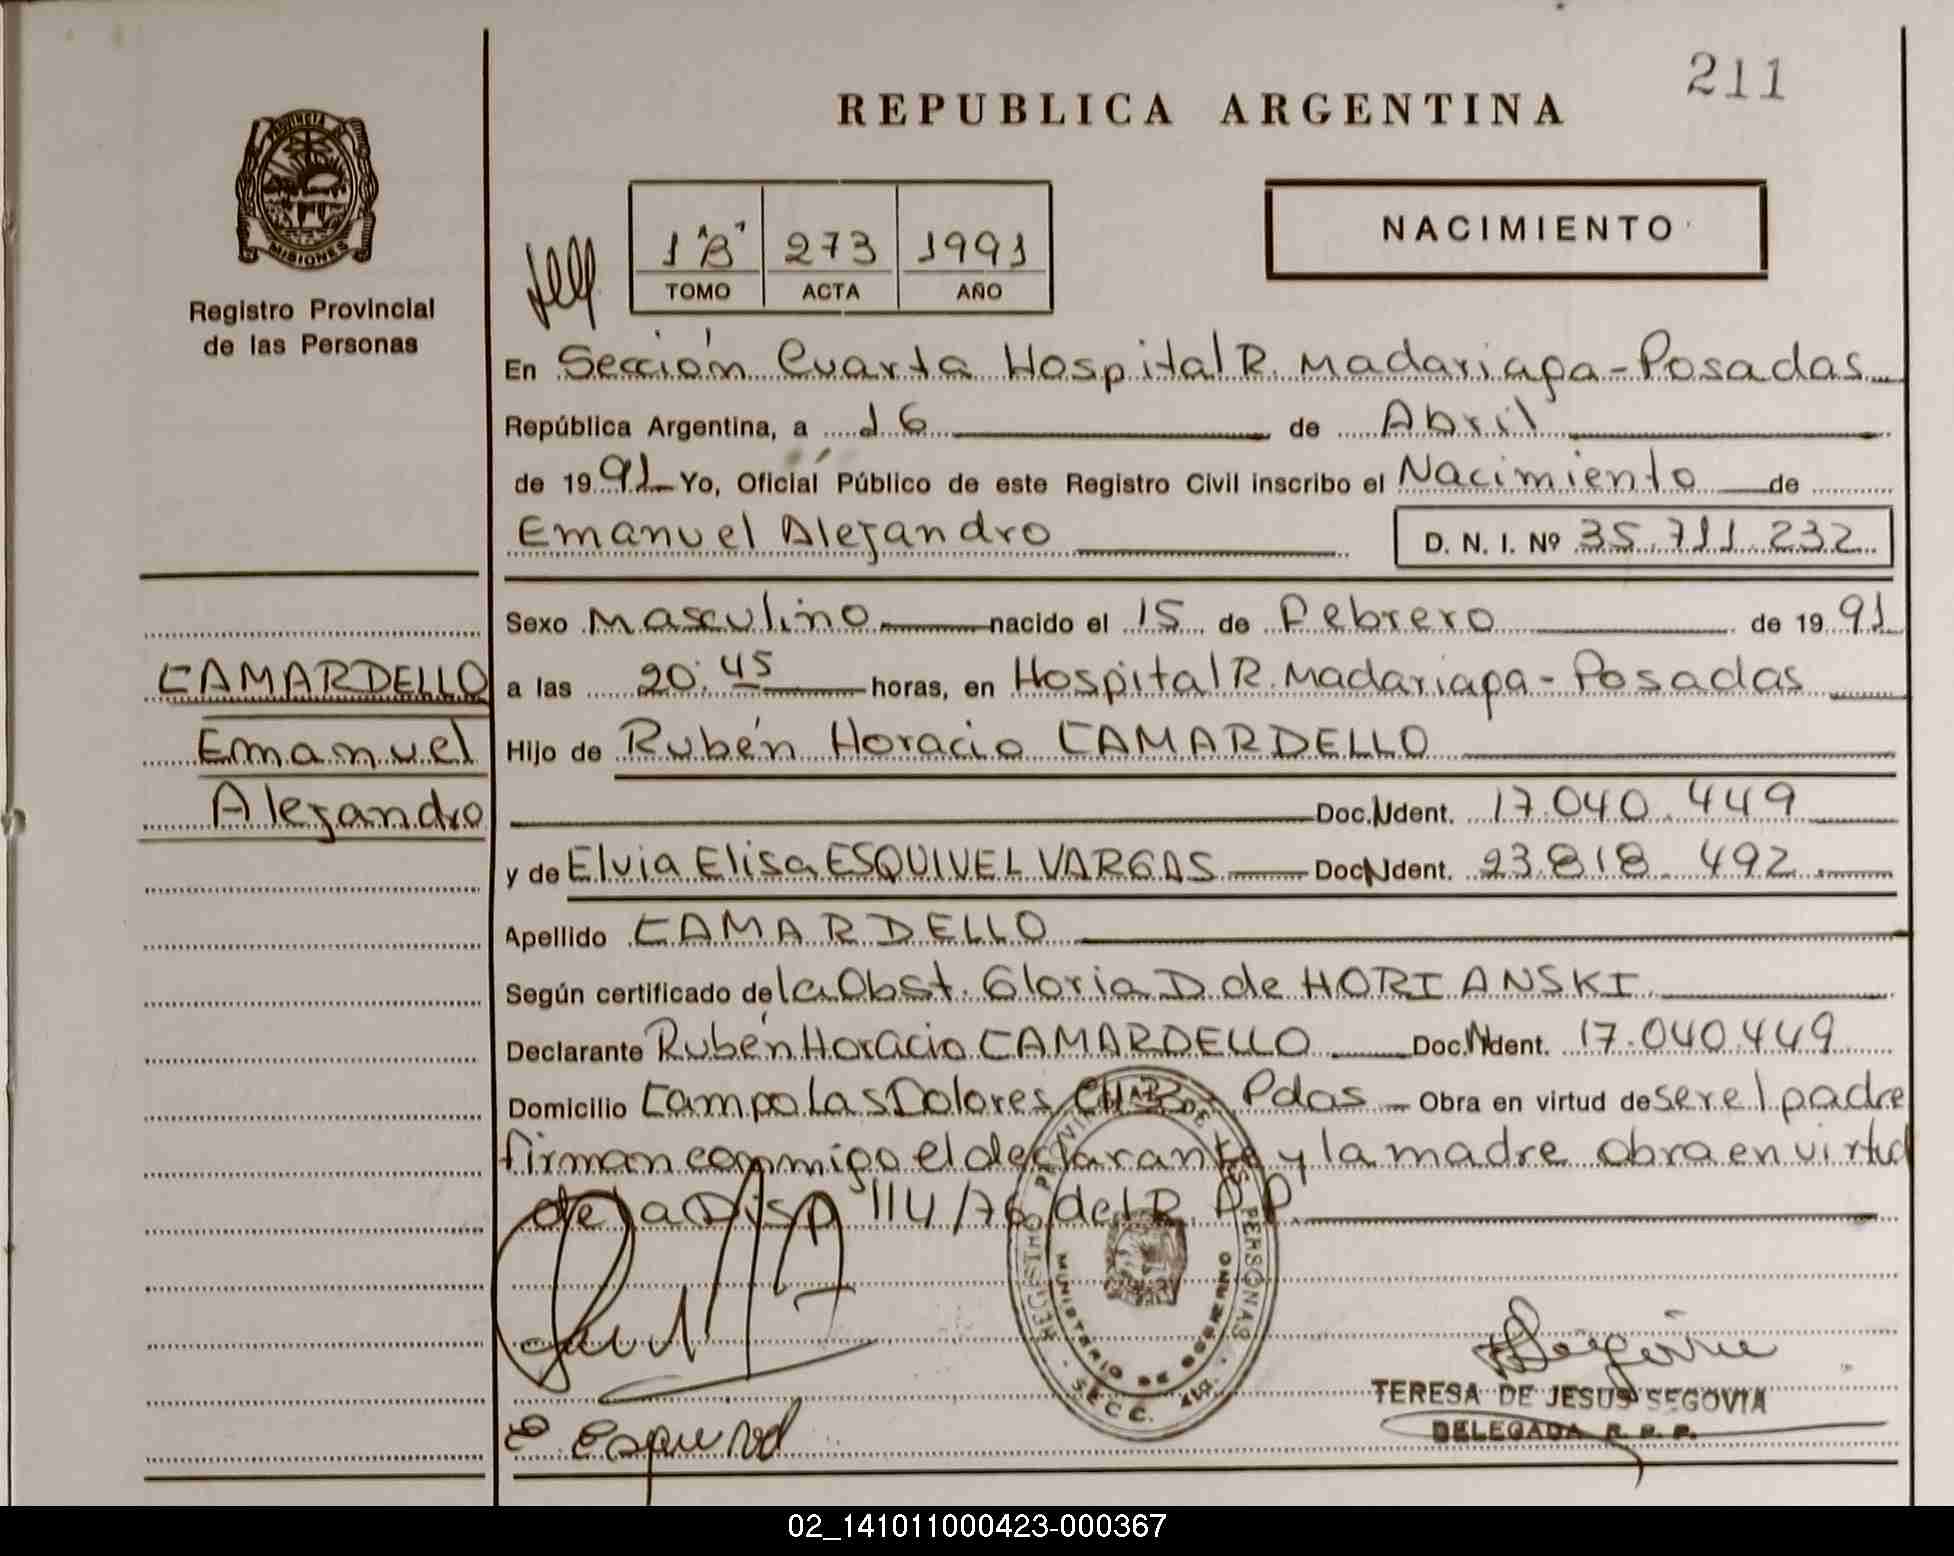 211
REPUBLICA ARGENTINA
PROVINCIA DE
MISIONES
Registro Provincial
de las Personas
1 "B" 273 1991
TOMO ACTA AÑO
NACIMIENTO
En Sección Cuarta Hospital R. Madariaga - Posadas
República Argentina, a 16 de Abril
de 1991 Yo, Oficial Público de este Registro Civil inscribo el Nacimiento de
Emanuel Alejandro D. N. I. Nº 35.711.232
CAMARDELLO
Emanuel
Alejandro
Sexo Masculino nacido el 15 de Febrero de 1991
a las 20:45 horas, en Hospital R. Madariaga - Posadas
Hijo de Rubén Horacio CAMARDELLO
Doc. Ident. 17.040.449
y de Elvia Elisa ESQUIVEL VARGAS Doc. Ident. 23.818.492
Apellido CAMARDELLO
Según certificado de la Obst. Gloria D. de HORIANSKI
Declarante Rubén Horacio CAMARDELLO Doc. Ident. 17.040.449
Domicilio Campo Las Dolores Pdas - Obra en virtud de ser el padre
firman conmigo el declarante y la madre obra en virtud
de la Disp 114/76 del R. P. P.
PERSONAS
MINISTERIO DE GOBIERNO
SECC. 4ta.
E Esquivel
TERESA DE JESUS SEGOVIA
DELEGADA R. P. P.
02_141011000423-000367